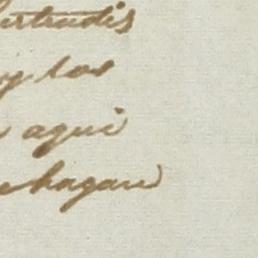 ertrudis
y los
aqui
hagan